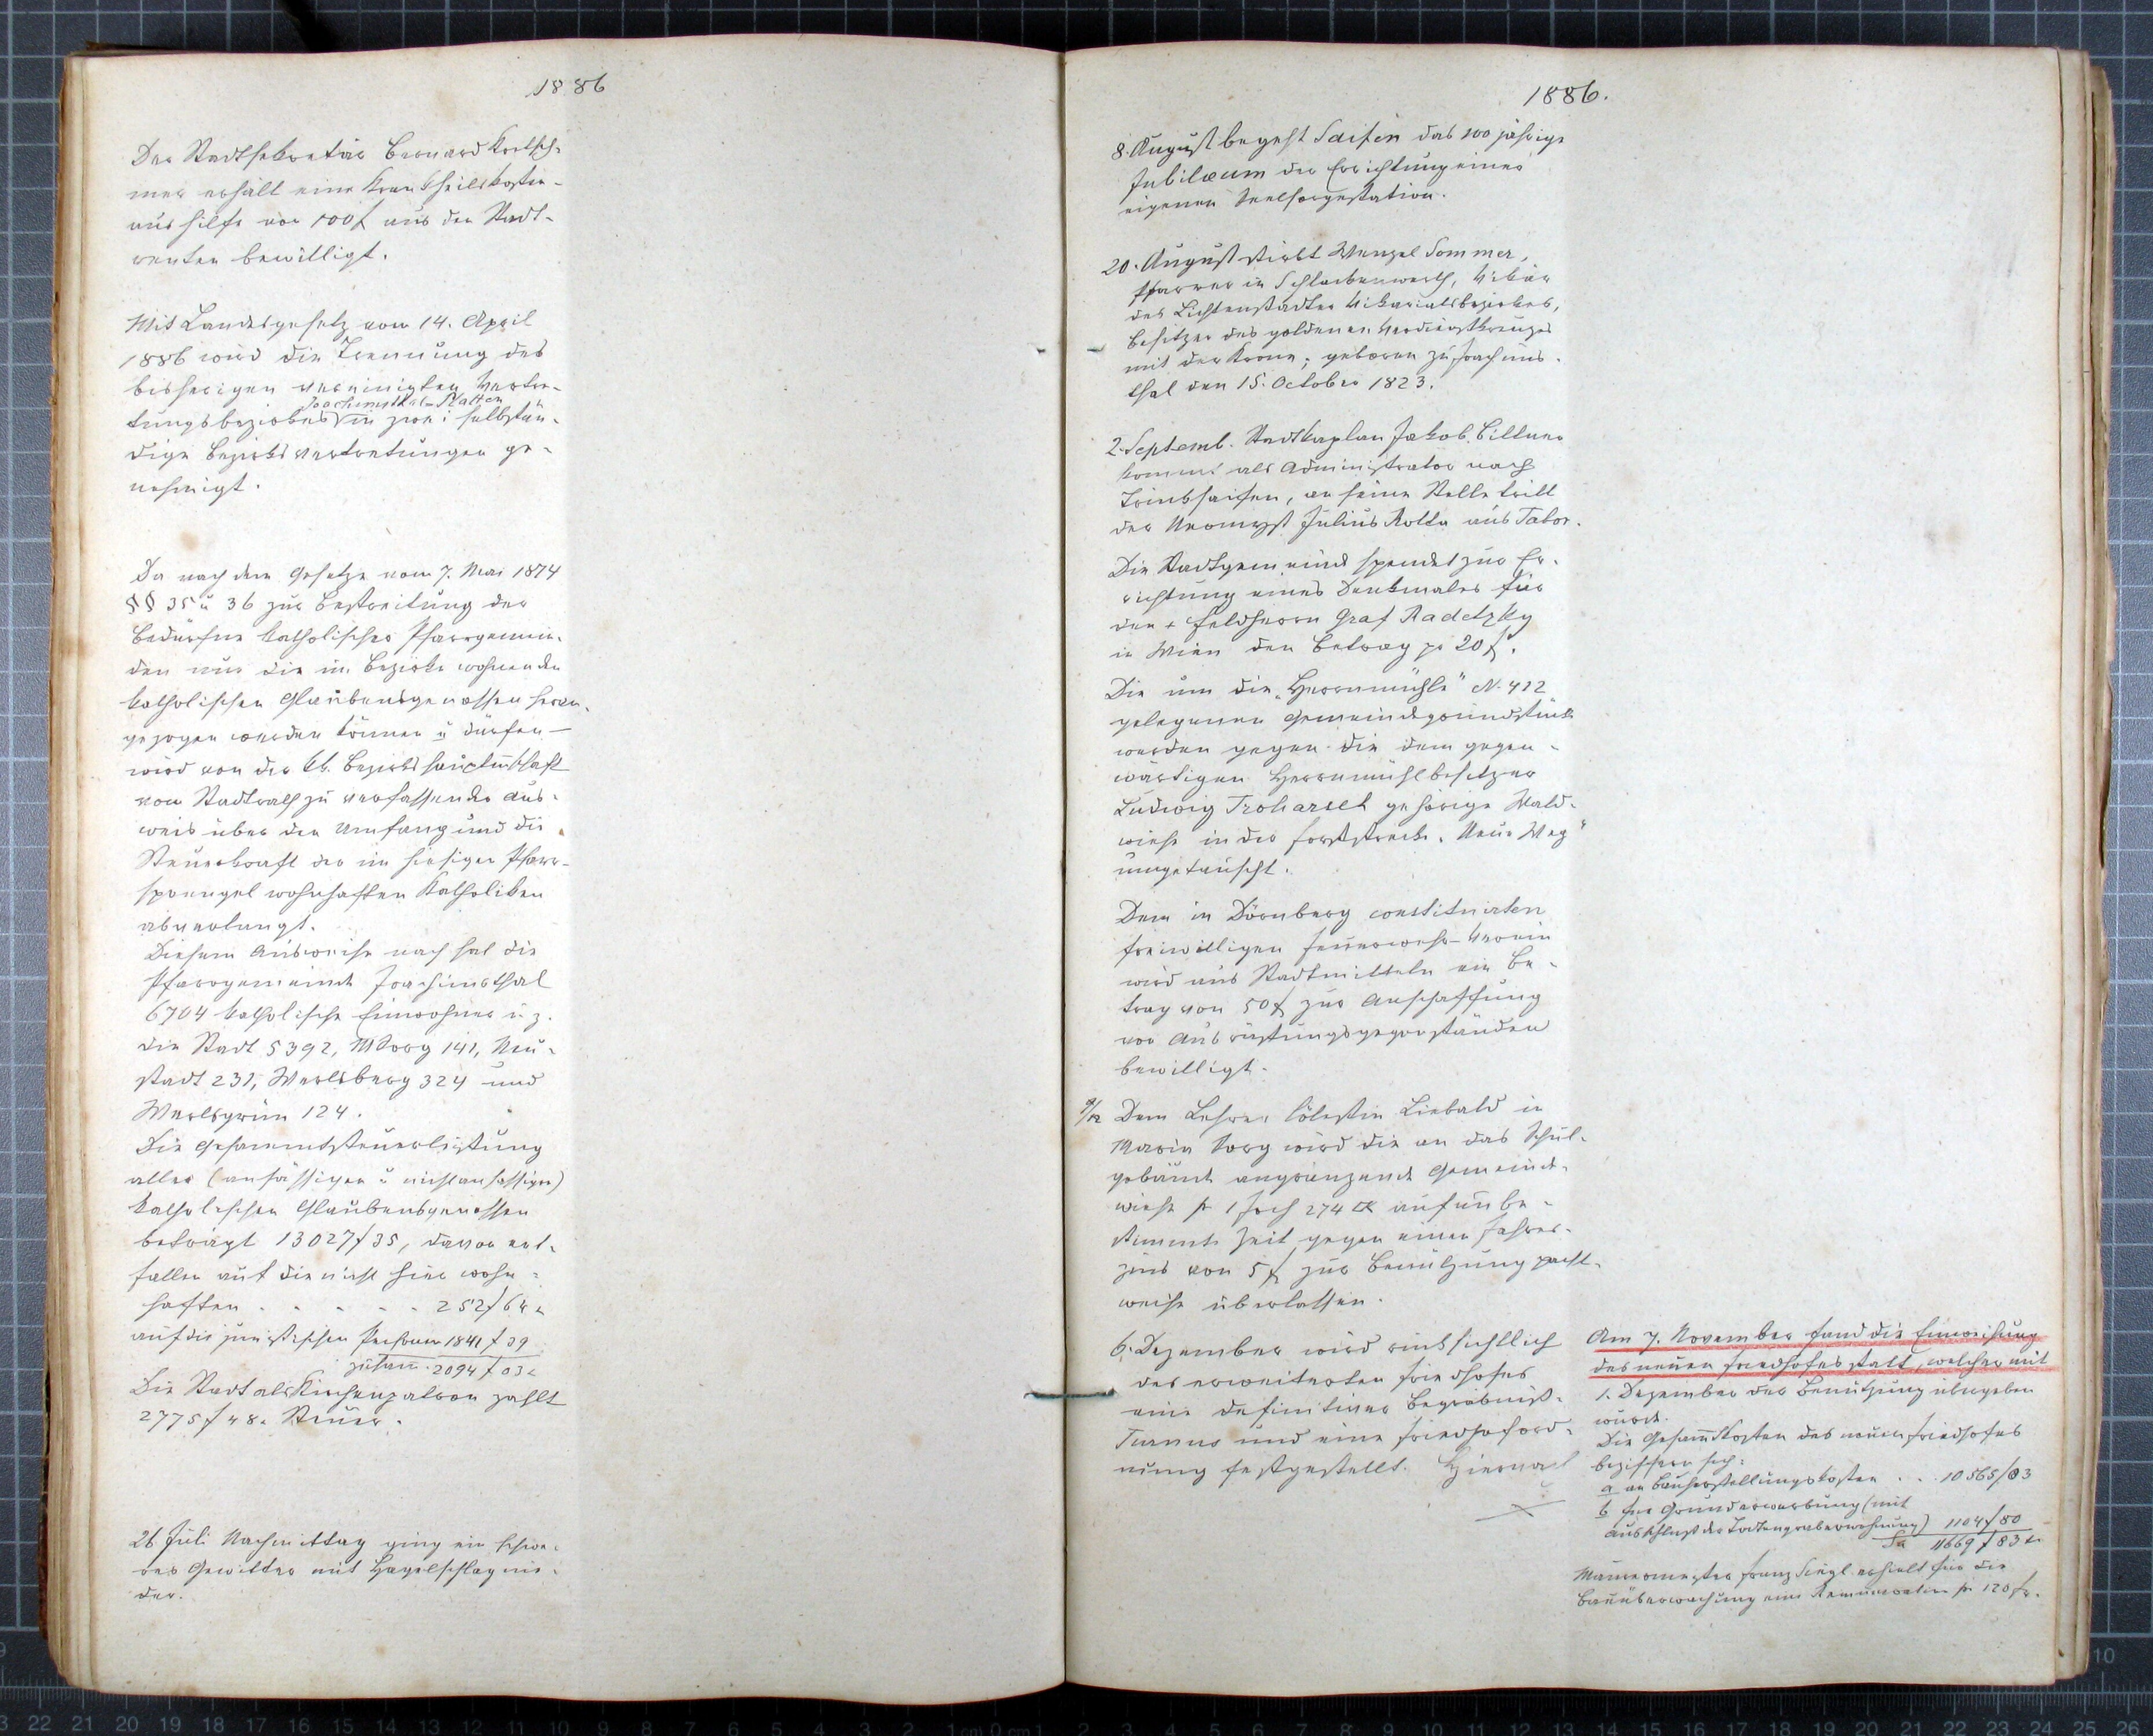 1886
Der Stadtsekretär Bernard Kretsch-
mer erhält eine Krankheitskosten-
aushilfe von 100 f aus den Stadt-
renten bewilligt.
Mit Landesgesetz vom 14. April
1886 wird die Trennung des
bisherigen vereinigten Vertre-
Joachimsthal-Platten
tungsbezirkes in zwei selbstän-
dige Bezirksvertretungen ge-
nehmigt.
Da nach dem Gesetze vom 7. Mai 1874
§§ 35 u 36 zur Bestreitung der
Bedürfne katholischer Pfarrgemein-
den nur die im Bezirke wohnenden
katholischen Glaubensgenossen heran-
gezogen werden können u dürfen –
wird von der kk. Bezirkshauptmschaft
vom Stadtrath zu verfassender Aus-
weis über den Umfang und die
Steuerkraft der im hiesigen Pfarr-
sprengel wohnhaften Katholiken
abverlangt.
Diesem Ausweise nach hat die
Pfarrgemeinde Joachimsthal
6704 katholische Einwohner u. z.
die Stadt 5392, MSorg 141, Neu-
stadt 231, Werlsberg 324 und
Werlsgrün 124.
Die Gesammtsteuerleistung
aller (ansässigen u nichtansässigen)
katholischen Glaubensgenossen
beträgt 13027 f 35, davon ent-
fallen auf die nicht hier wohn-
haften . . . . . 252 f 64 k
auf die juristischen Personen 1841 f 39
zusam. 2094 f 03 k
Die Stadt als Kirchenpatron zahlt
2775 f 48 k Steuer.
26 Juli Nachmittag ging ein schwe-
res Gewitter mit Hagelschlag nie-
der.
1886.
8. August begeht Saifen das 100 jährige
Jubilæum der Errichtung einer
eigenen Seelsorgestation.
20. August stirbt Wenzel Sommer,
Pfarrer in Schlackenwerth, Vikär
des Lichtenstadter Vikariatsbezirkes,
Besitzer des goldenen Verdienstkreuzes
mit der Krone; geboren zu Joachims-
thal den 15. October 1823.
2. Septemb. Stadtkaplan Jakob Billner
kommt als Administrator nach
Trinksaifen, an seine Stelle tritt
der Neomyst Julius Rolla aus Tabor.
Die Stadtgemeinde spendet zur Er-
richtung eines Denkmales für
den + Feldherrn Graf Radetzky
in Wien den Betrag pr 20 f.
Die um die „Herrnmühle" N. 412
gelegenen Gemeindegrundstücke
werden gegen die dem gegen-
wärtigen Herrnmühlbesitzer
Ludwig gehörige Wald-
wiese in der Forststrecke „Neue Weg"
umgetauscht.
Dem in Dürnberg constituirten
freiwilligen Feuerwehr-Verein
wird aus Stadtmitteln ein Be-
trag von 50 f zur Anschaffung
von Ausrüstungsgegenständen
bewilligt.
9/12 Dem Lehrer Cölestin Liebald in
Maria Sorg wird die an das Schul-
gebäude angränzende Gemeinde-
wiese pr 1 Joch 274 auf unbe-
stimmte Zeit gegen einen Jahres-
zins von 5 f zur Benützung pacht-
weise überlassen.
6. Dezember wird rücksichtlich
des erweiterten Friedhofes
eine definitiver Begräbniß-
Turnus und eine Friedhoford-
nung festgestellt. Hiernach
Am 7. November fand die Einweihung
des neuen Friedhofes statt, welcher mit
1. Dezember der Benützung übergeben
wurde.
Die Gesammtkosten des neuen Friedhofes
beziffern sich:
a an Bauherstellungskosten . . 10565/03
b für Grunderwerbung (mit
Ausschluß der Todtengräberwohnung) 1104 f 80
Sa 11669 f 83 k
Maurermeister Franz Siegl erhielt für die
Bauüberwachung eine Remuneration pr 120 fr.